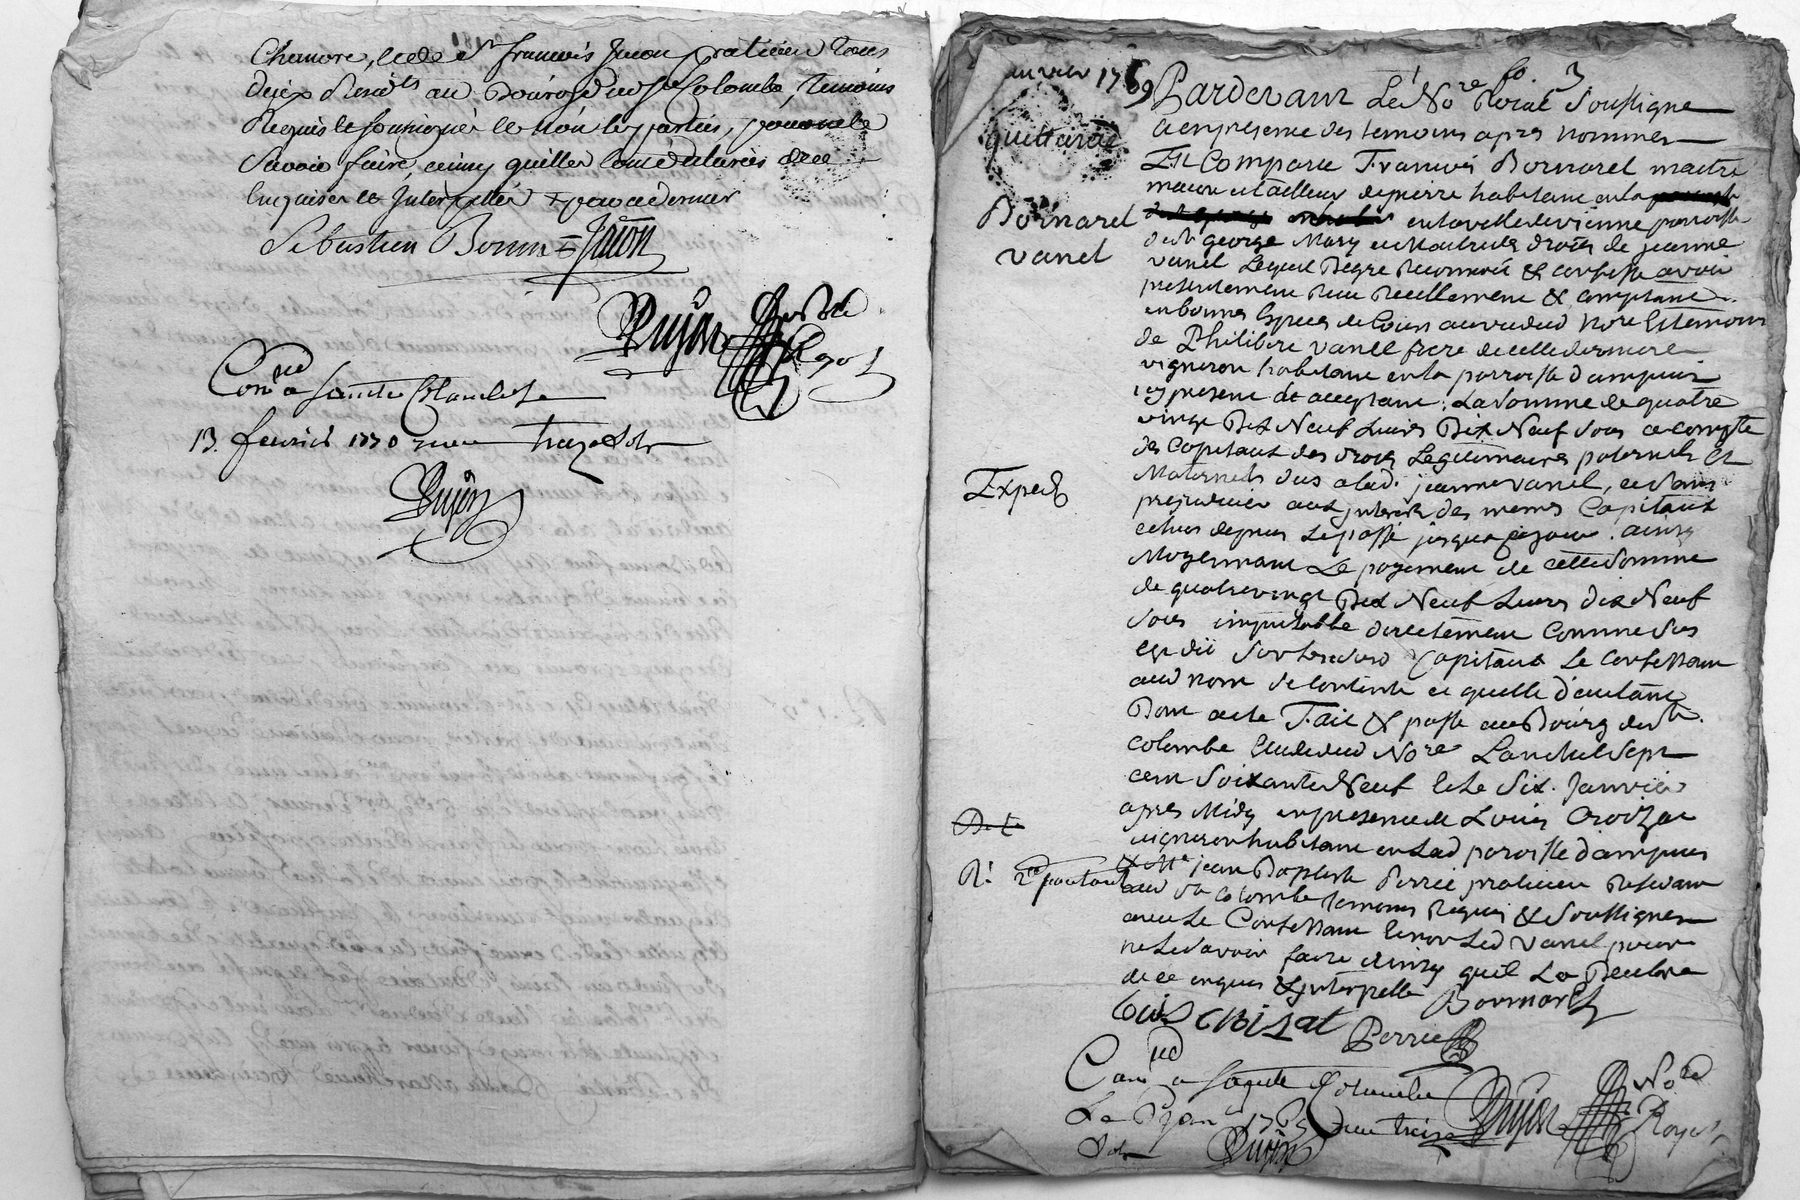 Chanore, led. sr françois Jacon praticien Tous
deux Residts au Bourg dud ste Colombe, Temoins
Requis le soussigné le non les parties, pour ne le
savoir faire, ainsy quelles l'ont déclarées dece
Enquises et Interpellés
Sébastien Bonin Jacon
Dujon Nore
Royal
Conle a Sainte Colombe le
13. fevrier 1770 reçu treize sols
Dujon
janvier 1769
fo. 3
quittance
Bornarel
vanel
Expedé
Pardevant Le Nore Royal soussigné
et en presence des temoins apres nommes
Est Comparu François Bornarel maitre
macon et tailleur de pierre habitant en la
en la ville de vienne parroisse
de st george Mary et Maitre des droits de jeanne
vanel Lequel De gre Reconnoit & confesse avoir
presentement Reçu Reellement & comptant
en bonnes Especes de Cours au vu dud Nore & temoins
de Philibert vanel frere de cette derniere
vigneron habitant en la parroisse d'ampuis
icy present & acceptant. La somme de quatre
vingt Dix Neuf Livres Dix Neuf sous a compte
des Capitaux des droits Legitimaires paternels et
Maternels dus a lad. jeanne vanel, et sans
prejudicier aux jnterets des memes Capitaux
echus depuis Le passé jusqua ce jour. ainsy
Moyennant Le payement de cette somme
de quatre vingt Dix Neuf Livres dix Neuf
sous imputable directement Comme dus
est dit sur lesdits Capitaux Le Confessant
aud nom se contente et quitte d'autant
Dont acte Fait & passé au Bourg de ste.
Colombe Etude dud Nore L'an mil sept
cent soixante Neuf & le six. Janvier
apres Midy en presence de Louis Croizat
vigneron habitant en Lad parroisse d'ampuis
& Me jean Baptiste Perrié praticien Residant
aud ste Colombe temoins Requis & soussignes
avec Le Confessant & non Led vanel pour
ne Le savoir faire ainsy qu'il La Declare
de ce enquis & jnterpellé Bornarel
Louis croizat
Perrié
Conle a Sainte Colombe
Le janr 1769 Reçu treize
sols Dujon
Dujon Nore
Royal